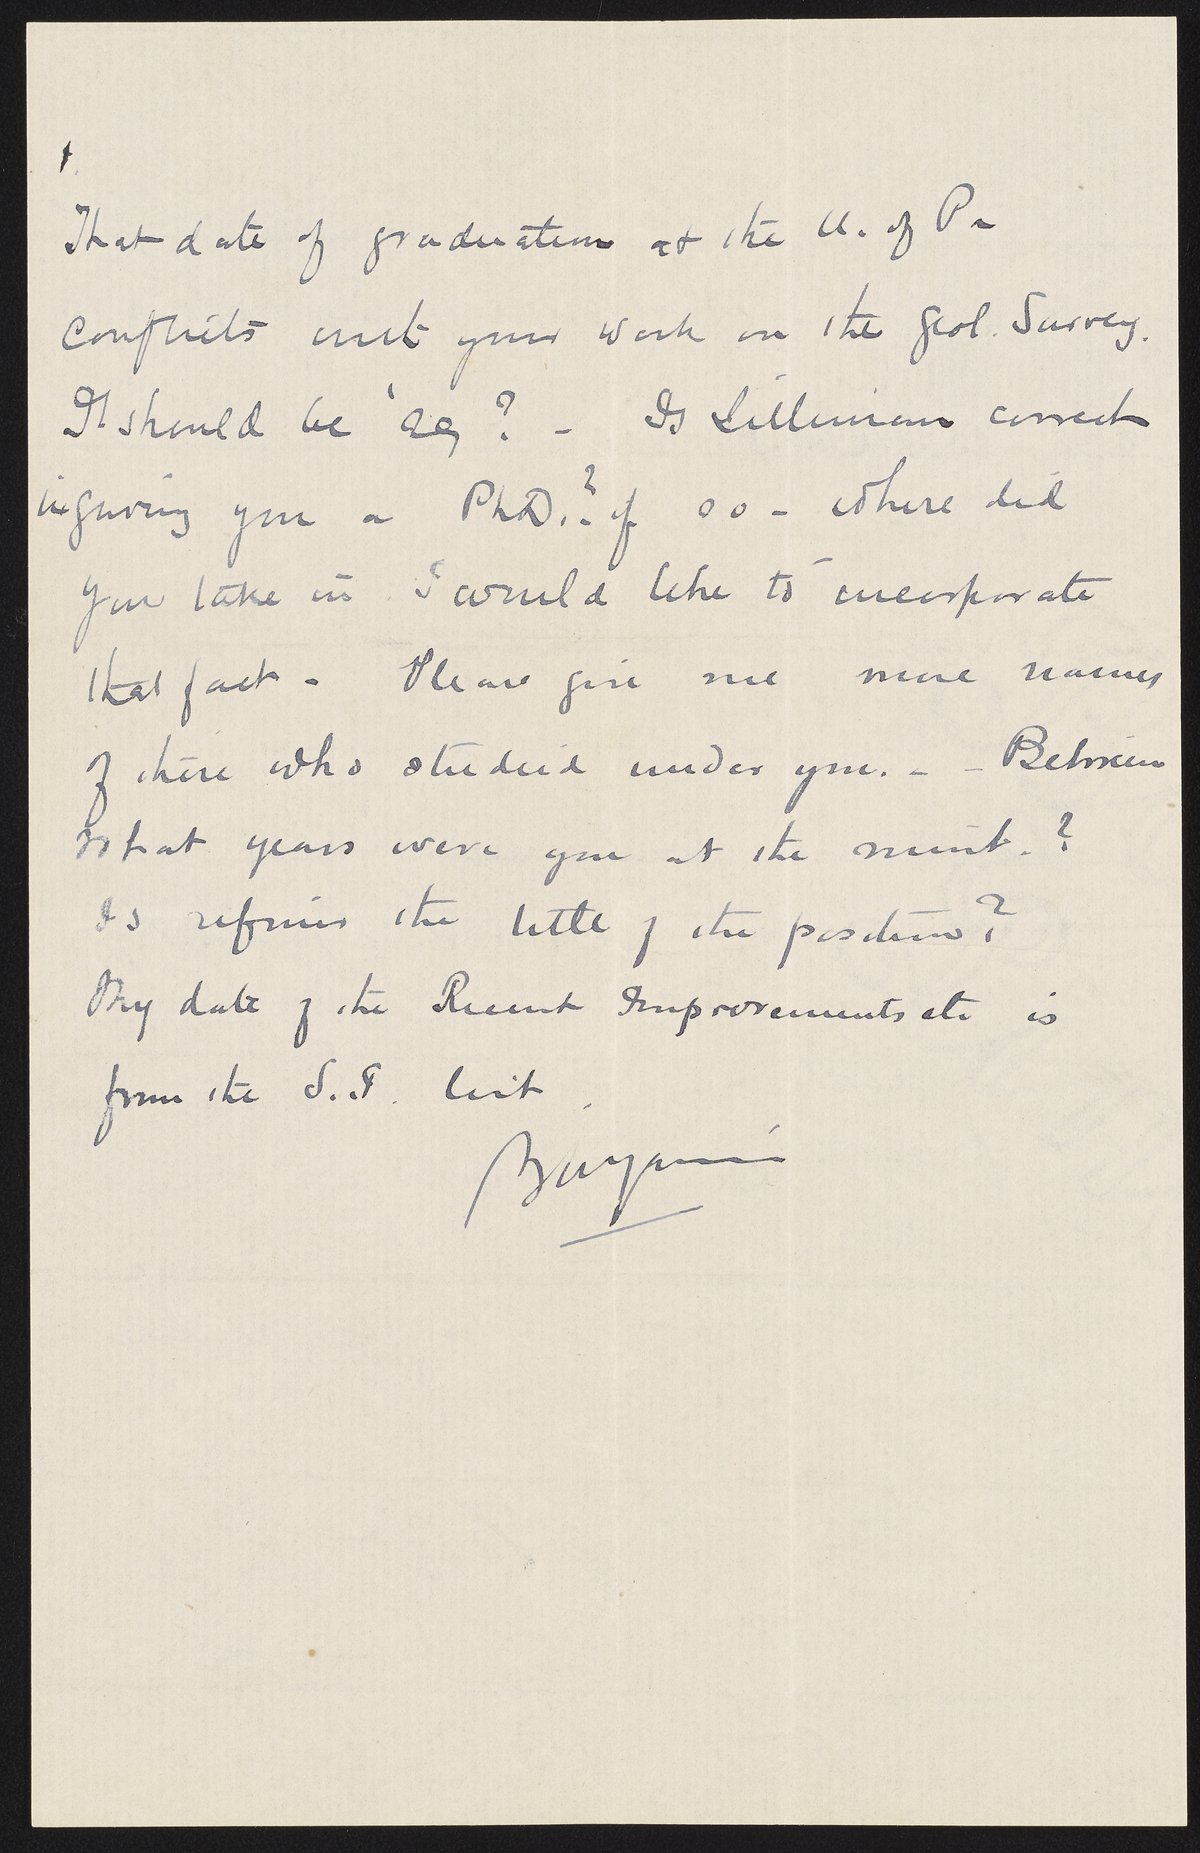 That date of graduation at the U. of Pa
conflicts with your work on the Geol. Survey.
It should be ? - Is Silliman correct
in giving you a PhD.? if so - where did
you take it I would like to incorporate
that fact - Please give me more names
of those who studied under you. - - Between
what years were you at the mint. ?
Is refiner the title of the position?
My date of the Recent Improvements etc is
from the S. I. list.
Benjamin